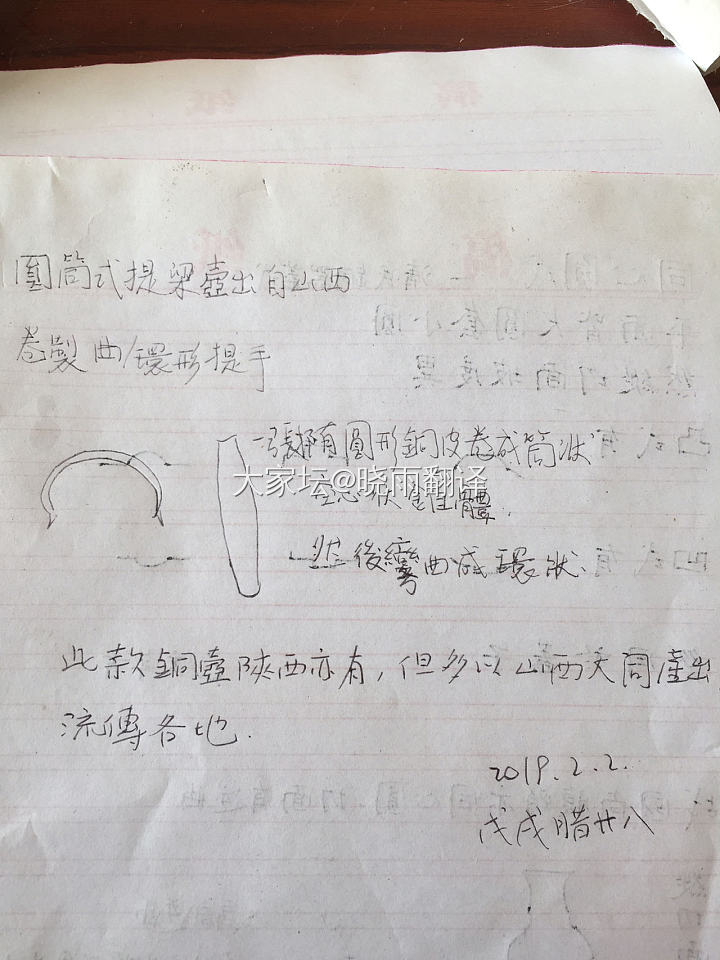 圓筒式提梁壺出自山西
卷製曲/環形提手
一張橢圓形銅皮卷成筒狀
空心狀錐體.
然後彎曲成環狀.
大家坛@晓雨翻译
此款銅壺陝西亦有,但多以山西大同産出
流傳各地.
2019.2.2.
戊戌腊廿八